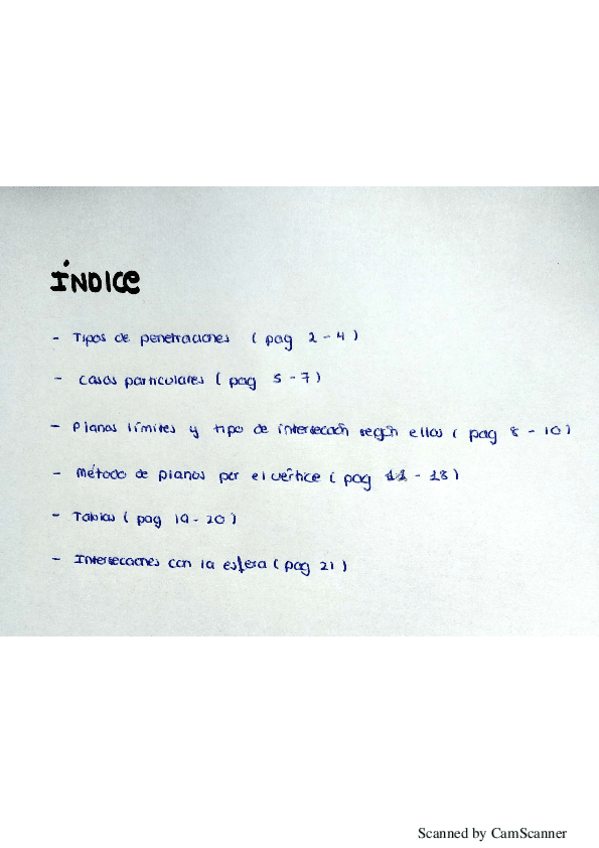 ÍNDICE
- Tipos de penetraciones ( pag 2 - 4 )
- Casos particulares ( pag 5 - 7 )
- Planos límites y tipo de intersección según ellos ( pag 8 - 10 )
- Método de planos por el vértice ( pag 11 - 18 )
- Tablas ( pag 19 - 20 )
- Intersecciones con la esfera ( pag 21 )
Scanned by CamScanner